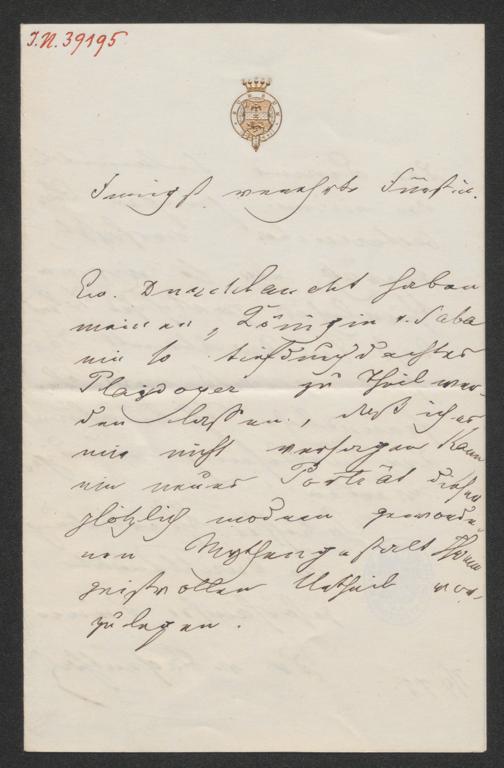 I.N. 39195
Innigst verehrte Fürstin.
Ew. Durchlaucht haben
meinen „Königin v. Saba
ein so tiefdurchdachtes
Plaidoyer zu Theil wer-
den lassen, daß ich es
mir nicht versagen kann
ein neues Porträt dieser
plötzlich modern geworde-
nen Mythengestalt Ihrem
geistvollen Urtheil vor-
zulegen.